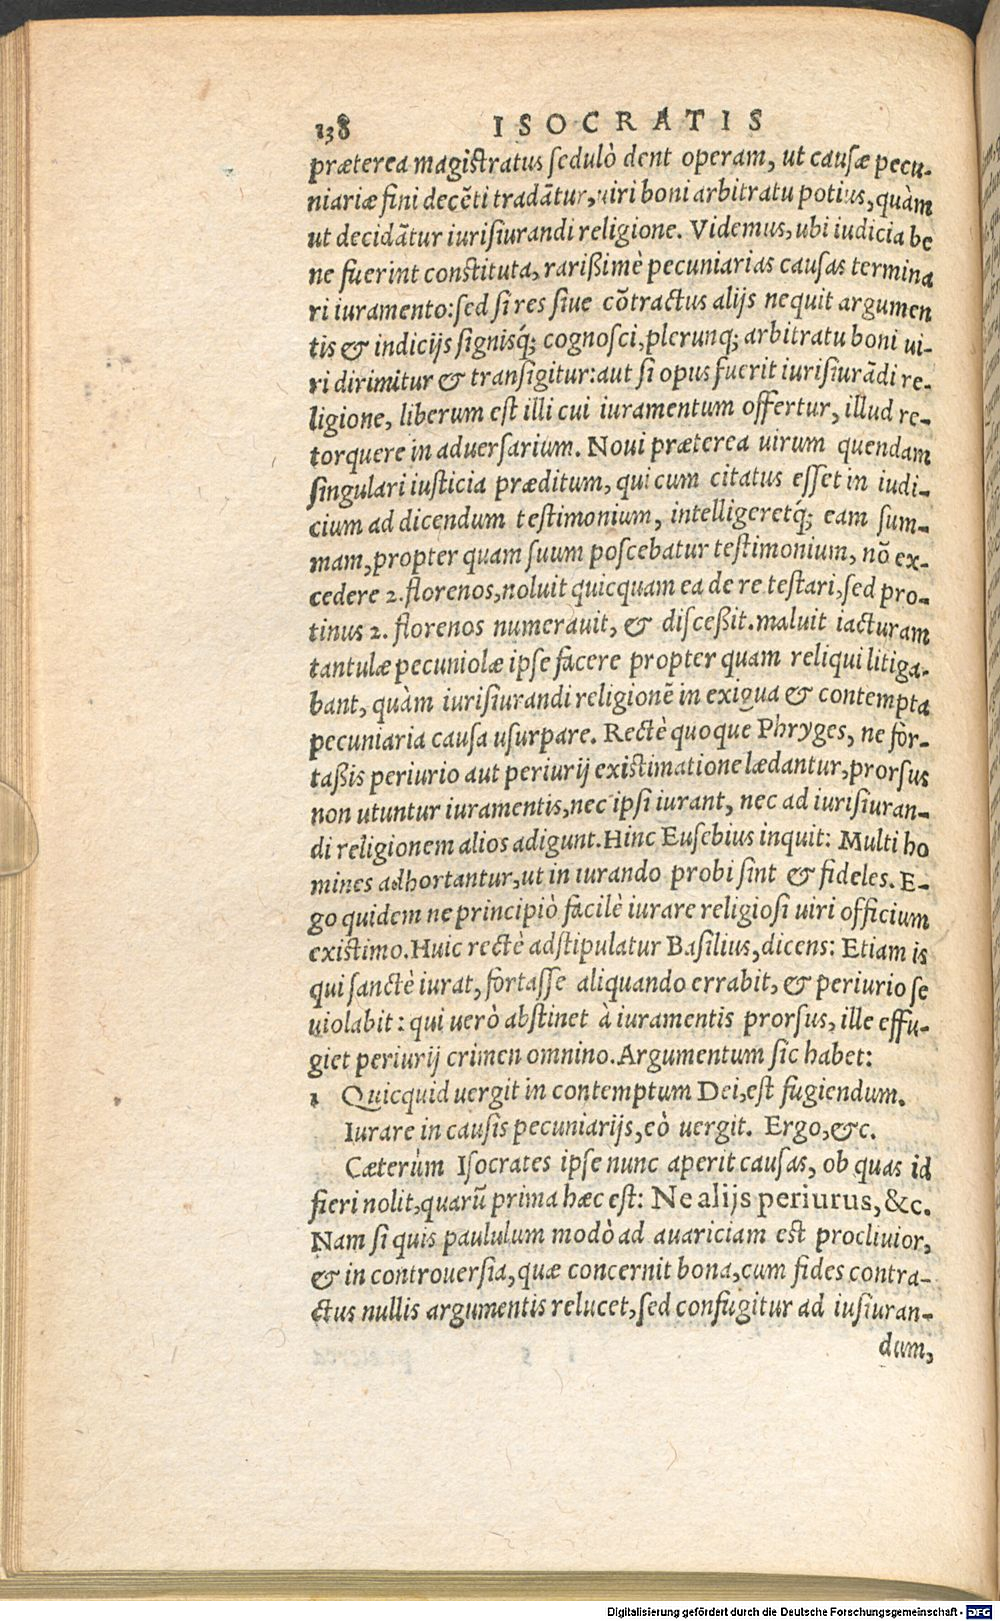 138 ISOCRATIS
præterea magistratus sedulò dent operam, ut causæ pecu-
niariæ fini decẽti tradãtur, uiri boni arbitratu potius, quàm
ut decidãtur iurisiurandi religione. Videmus, ubi iudicia be
ne fuerint constituta, rarißimè pecuniarias causas termina
ri iuramento: sed si res siue cõtractus alijs nequit argumen
tis & indicijs signisq́; cognosci, plerunq; arbitratu boni ui-
ri dirimitur & transigitur: aut si opus fuerit iurisiurãdi re-
ligione, liberum est illi cui iuramentum offertur, illud re-
torquere in aduersarium. Noui præterea uirum quendam
singulari iusticia præditum, qui cum citatus esset in iudi-
cium ad dicendum testimonium, intelligeretq́; eam sum-
mam, propter quam suum poscebatur testimonium, nõ ex-
cedere 2. florenos, noluit quicquam ea de re testari, sed pro-
tinus 2. florenos numerauit, & disceßit. maluit iacturam
tantulæ pecuniolæ ipse facere propter quam reliqui litiga-
bant, quàm iurisiurandi religionẽ in exigua & contempta
pecuniaria causa usurpare. Rectè quoque Phryges, ne for-
taßis periurio aut periurij existimatione lædantur, prorsus
non utuntur iuramentis, nec ipsi iurant, nec ad iurisiuran-
di religionem alios adigunt. Hinc Eusebius inquit: Multi ho
mines adhortantur, ut in iurando probi sint & fideles. E-
go quidem ne principiò facilè iurare religiosi uiri officium
existimo. Huic rectè adstipulatur Basilius, dicens: Etiam is
qui sanctè iurat, fortasse aliquando errabit, & periurio se
uiolabit: qui uerò abstinet à iuramentis prorsus, ille effu-
giet periurij crimen omnino. Argumentum sic habet:
1 Quicquid uergit in contemptum Dei, est fugiendum.
Iurare in causis pecuniarijs, eò uergit. Ergo, &c.
Cæterùm Isocrates ipse nunc aperit causas, ob quas id
fieri nolit, quarũ prima hæc est: Ne alijs periurus, &c.
Nam si quis paululum modò ad auariciam est procliuior,
& in controuersia, quæ concernit bona, cum fides contra-
ctus nullis argumentis relucet, sed confugitur ad iusiuran-
dum,
Digitalisierung gefördert durch die Deutsche Forschungsgemeinschaft - DFG